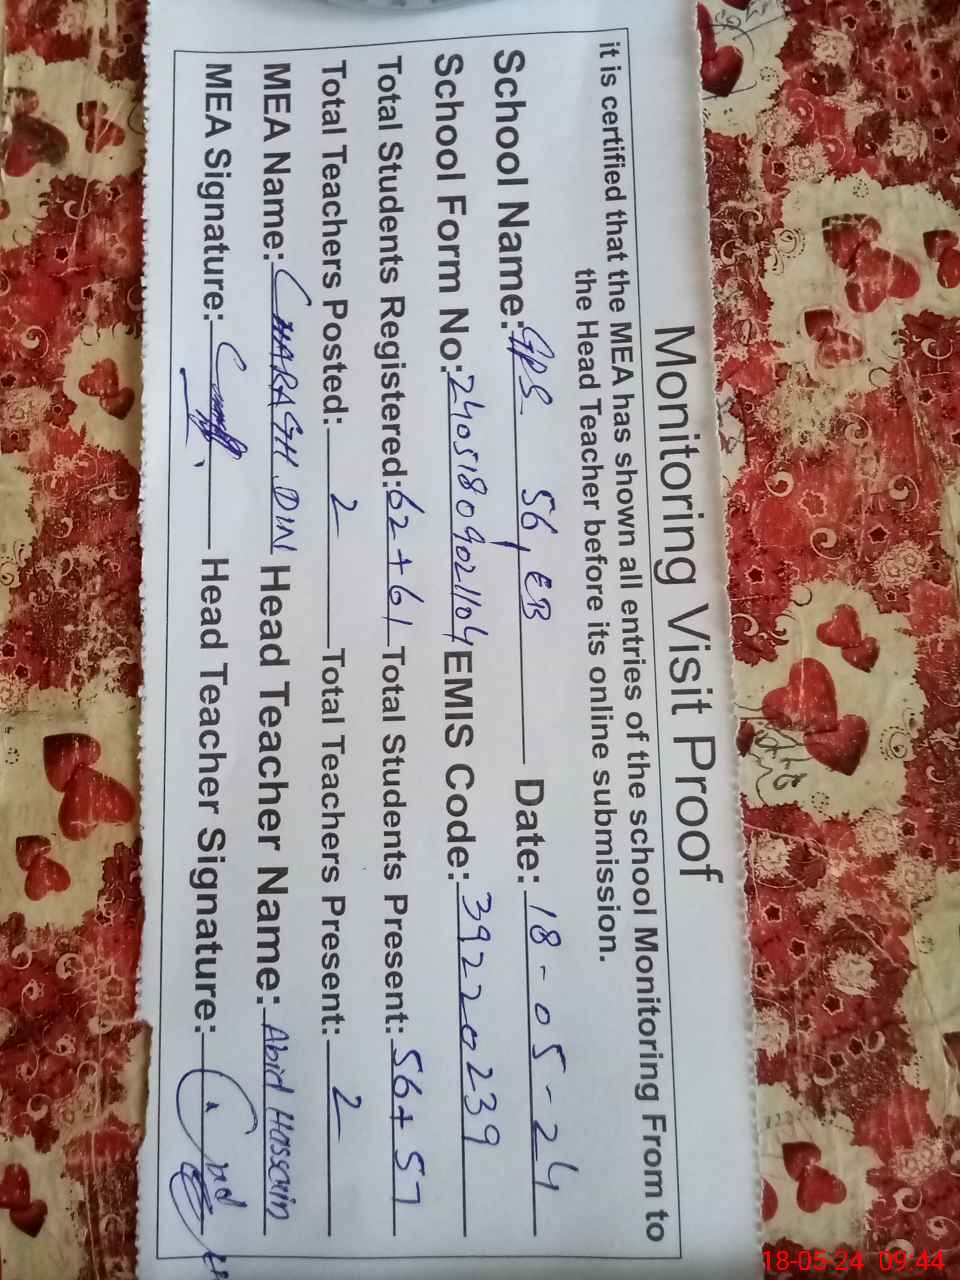 Monitoring Visit Proof
it is certified that the MEA has shown all entries of the school Monitoring From to
the Head Teacher before its online submission.
School Name: GPS 56, EB Date: 18-05-24
School Form No: 24051809021104 EMIS Code: 39220239
Total Students Registered: 62+61 Total Students Present: 56+57
Total Teachers Posted: 2 Total Teachers Present: 2
MEA Name: CHARAGH DIN Head Teacher Name: Abid Hassain
MEA Signature: Head Teacher Signature:
18-05-24 09:44